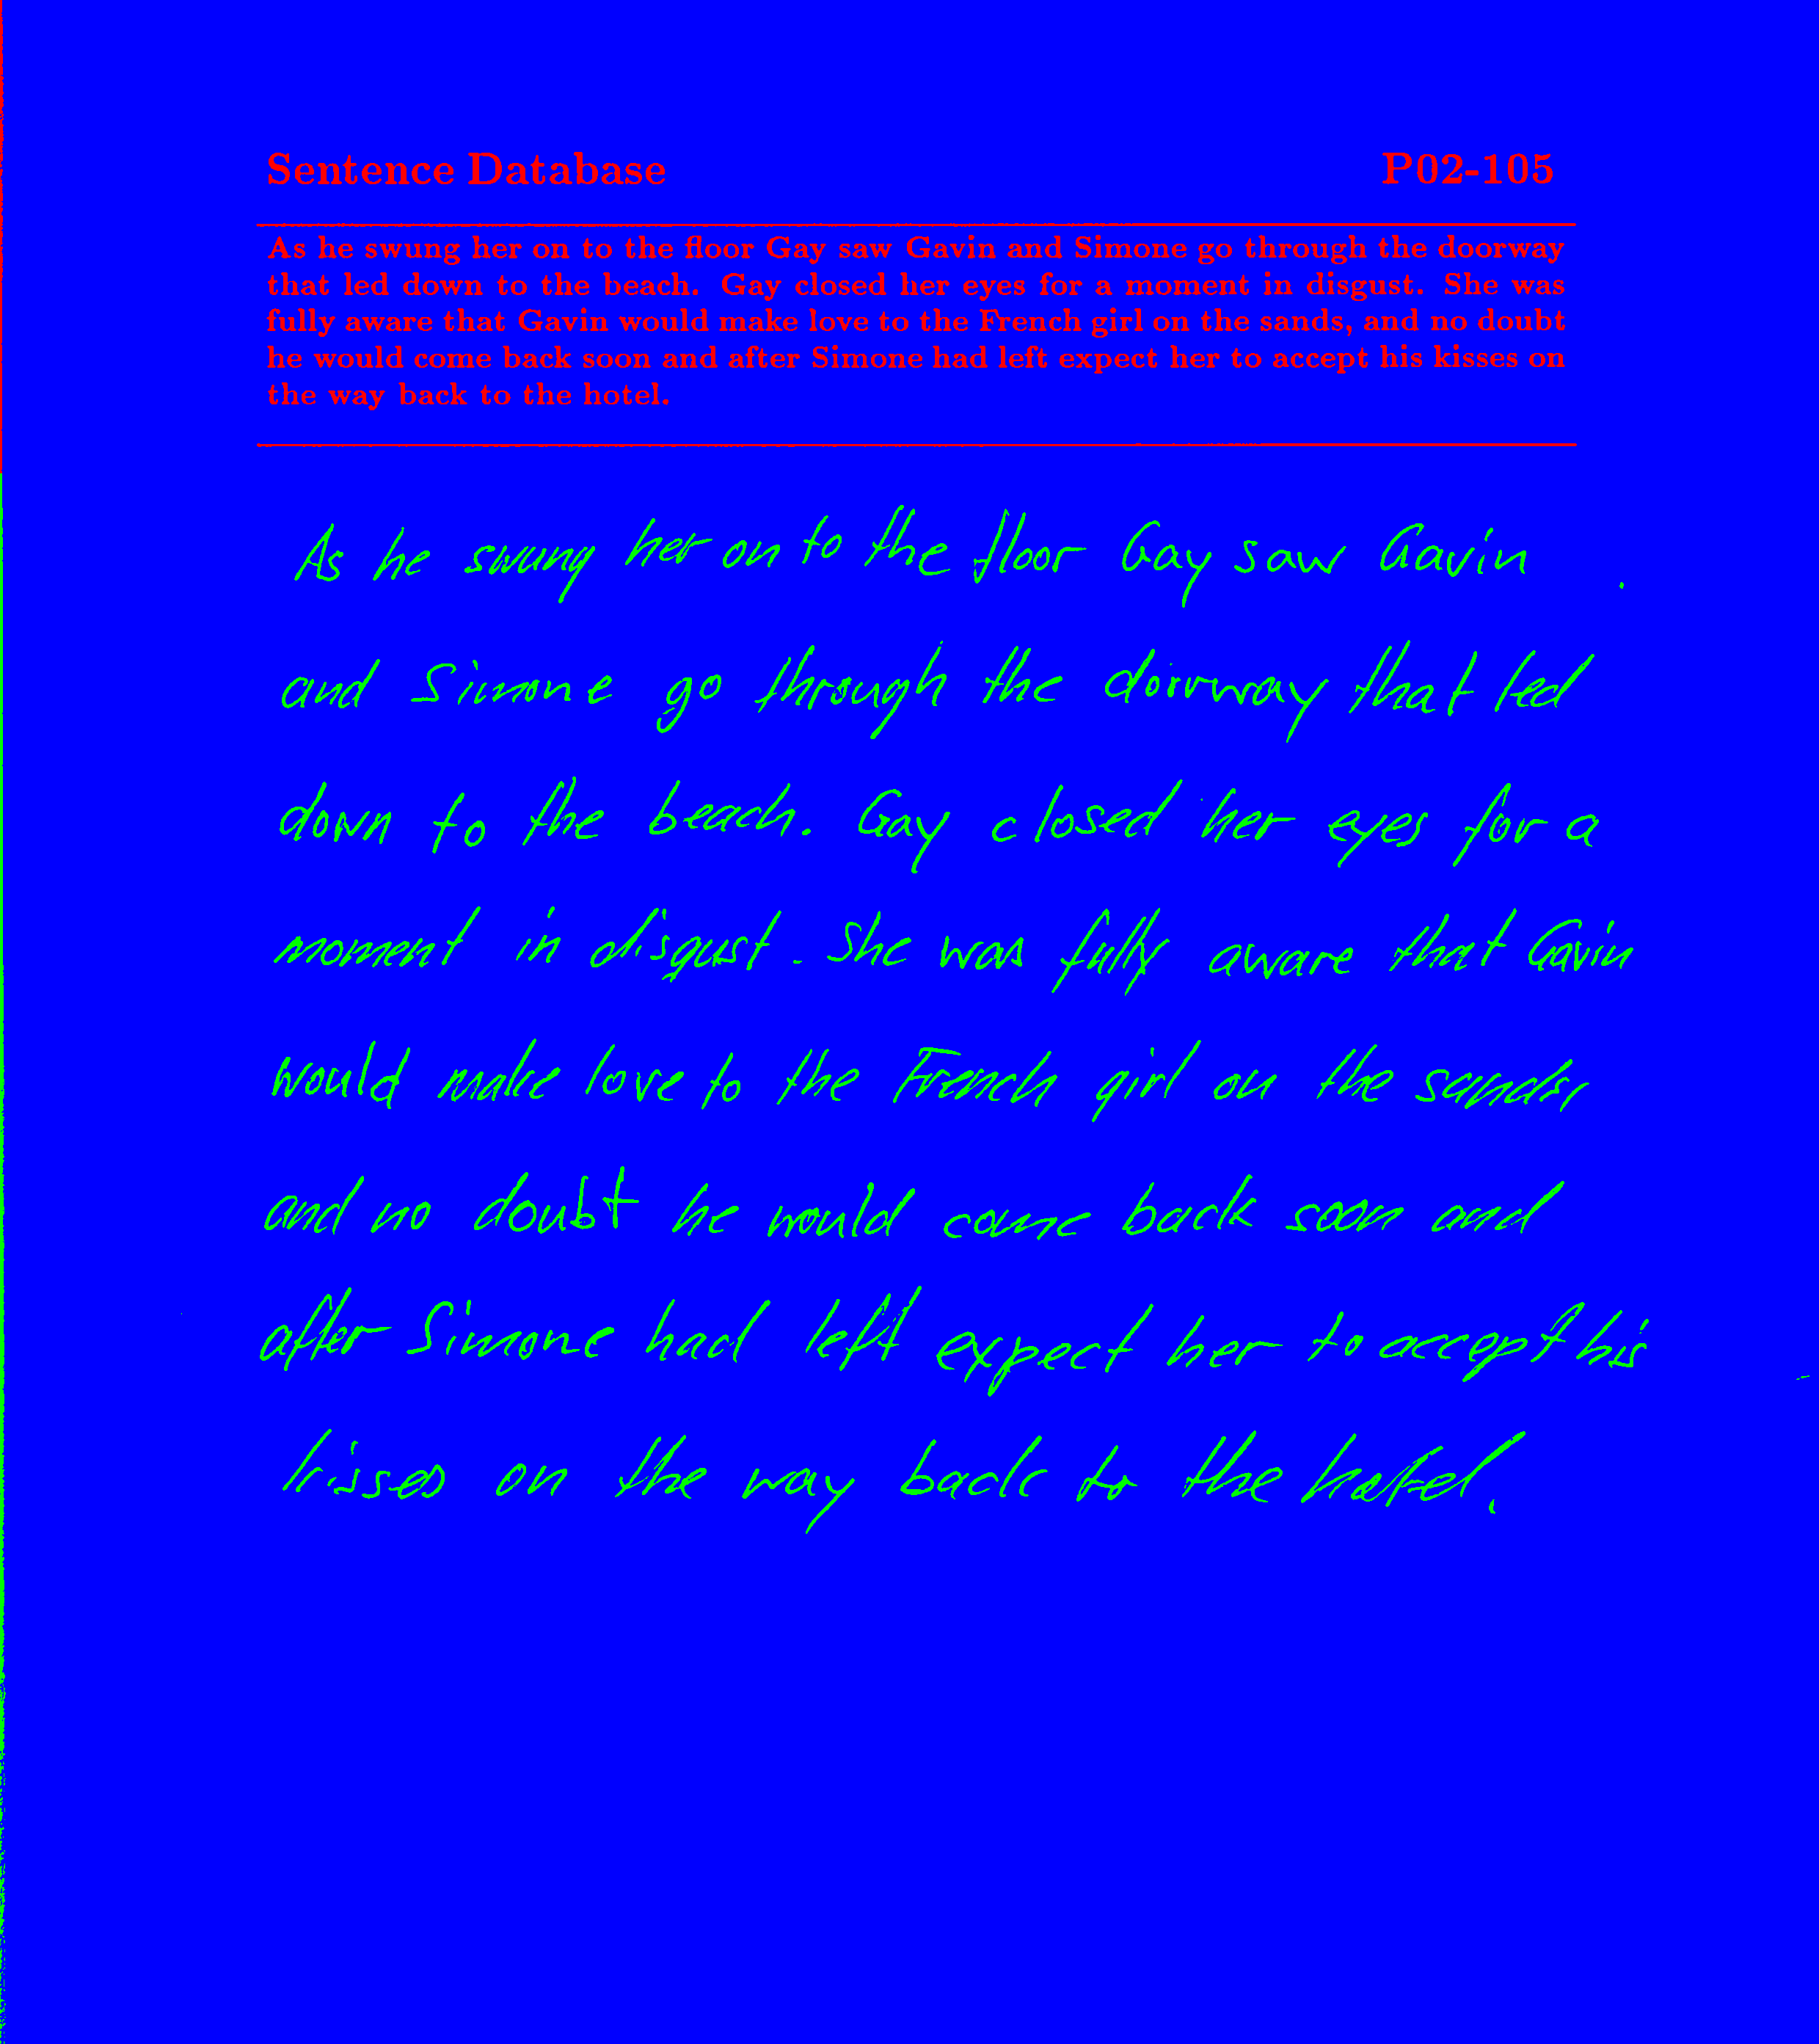 Sentence Database P02-105
As he swung her on to the floor Gay saw Gavin and Simone go through the doorway
that led down to the beach. Gay closed her eyes for a moment in disgust. She was
fully aware that Gavin would make love to the French girl on the sands, and no doubt
he would come back soon and after Simone had left expect her to accept his kisses on
the way back to the hotel.
As he swung her on to the floor Gay saw Gavin
and Simone go through the doorway that led
down to the beach. Gay closed her eyes for a
moment in disgust. She was fully aware that Gavin
would make love to the French girl on the sands,
and no doubt he would come back soon and
after Simone had left expect her to accept his
kisses on the way back to the hotel.